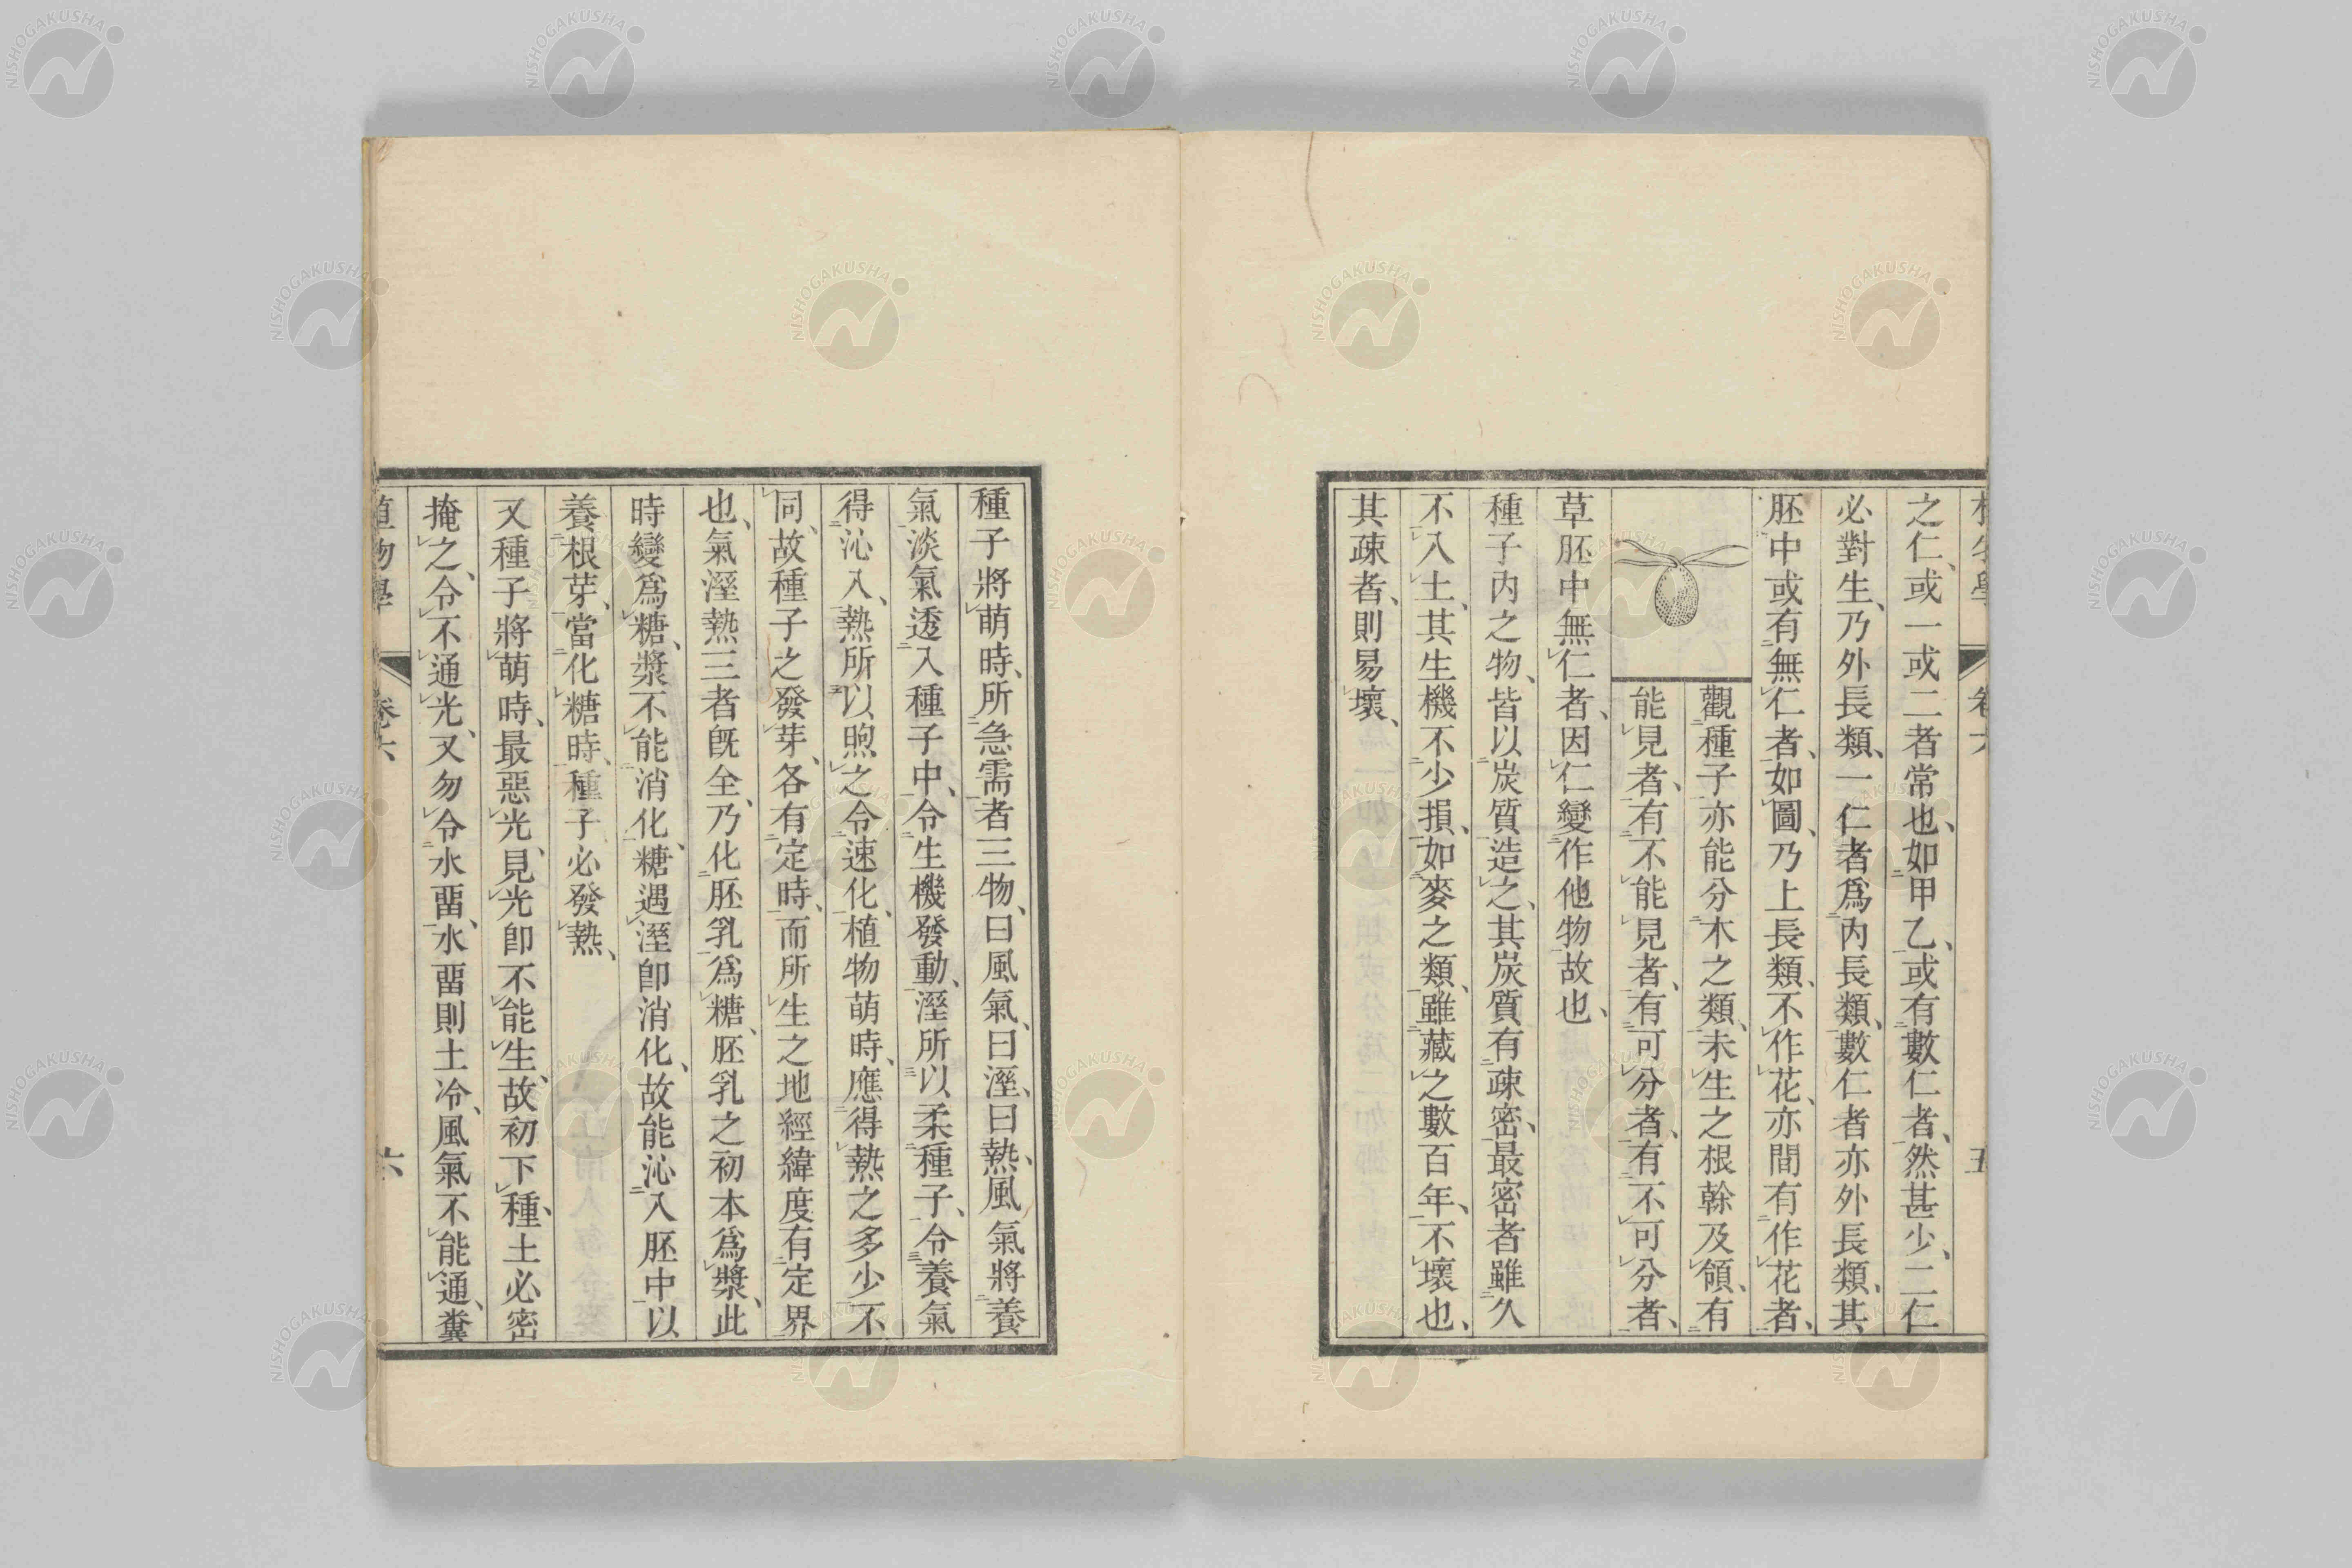 之仁、或一或二者常也、如甲乙、或有數仁者、然甚少、二仁
必對生、乃外長類、一仁者爲内長類、數仁者亦外長類、其
胚中或有無仁者、如圖、乃上長類、不作花、亦間有作花者、
觀種子亦能分木之類、未生之根榦及領、有
能見者、有不能見者、有可分者、有不可分者、
草胚中無仁者、因仁變作他物故也、
種子内之物、皆以炭質造之、其炭質有疎密、最密者雖久
不入土、其生機不少損、如麥之類、雖藏之數百年、不壞也、
其疎者、則易壞、
卷六
五
種子將萌時、所急需者三物、曰風氣、曰溼、曰熱、風氣將養
氣淡氣透入種子中、令生機發動、溼所以柔種子、令養氣
得沁入、熱所以煦之、令速化、植物萌時、應得熱之多少不
同、故種子之發芽、各有定時、而所生之地經緯度有定界
也、氣溼熱三者旣全、乃化胚乳爲糖、胚乳之初本爲漿、此
時變爲糖、漿不能消化、糖遇溼卽消化、故能沁入胚中、以
養根芽、當化糖時、種子必發熱、
又種子將萌時、最惡光、見光卽不能生、故初下種、土必密
掩之、令不通光、又勿令水畱、水畱則土冷、風氣不能通、糞
植物學
卷六
六
NISHOGAKUSHA